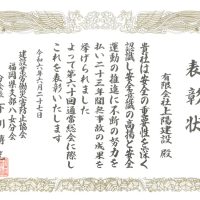 表彰状
有限会社上陽建設 殿
貴社は安全の重要性を深く
認識し安全意識の高揚と安全
運動の推進に不断の努力を
払い二十三年間無事故の成果を
挙げられました
よって第六十回通常総会に際し
これを表彰いたします
令和六年六月二十七日
建設業労働災害防止協会
福岡県支部八女分会